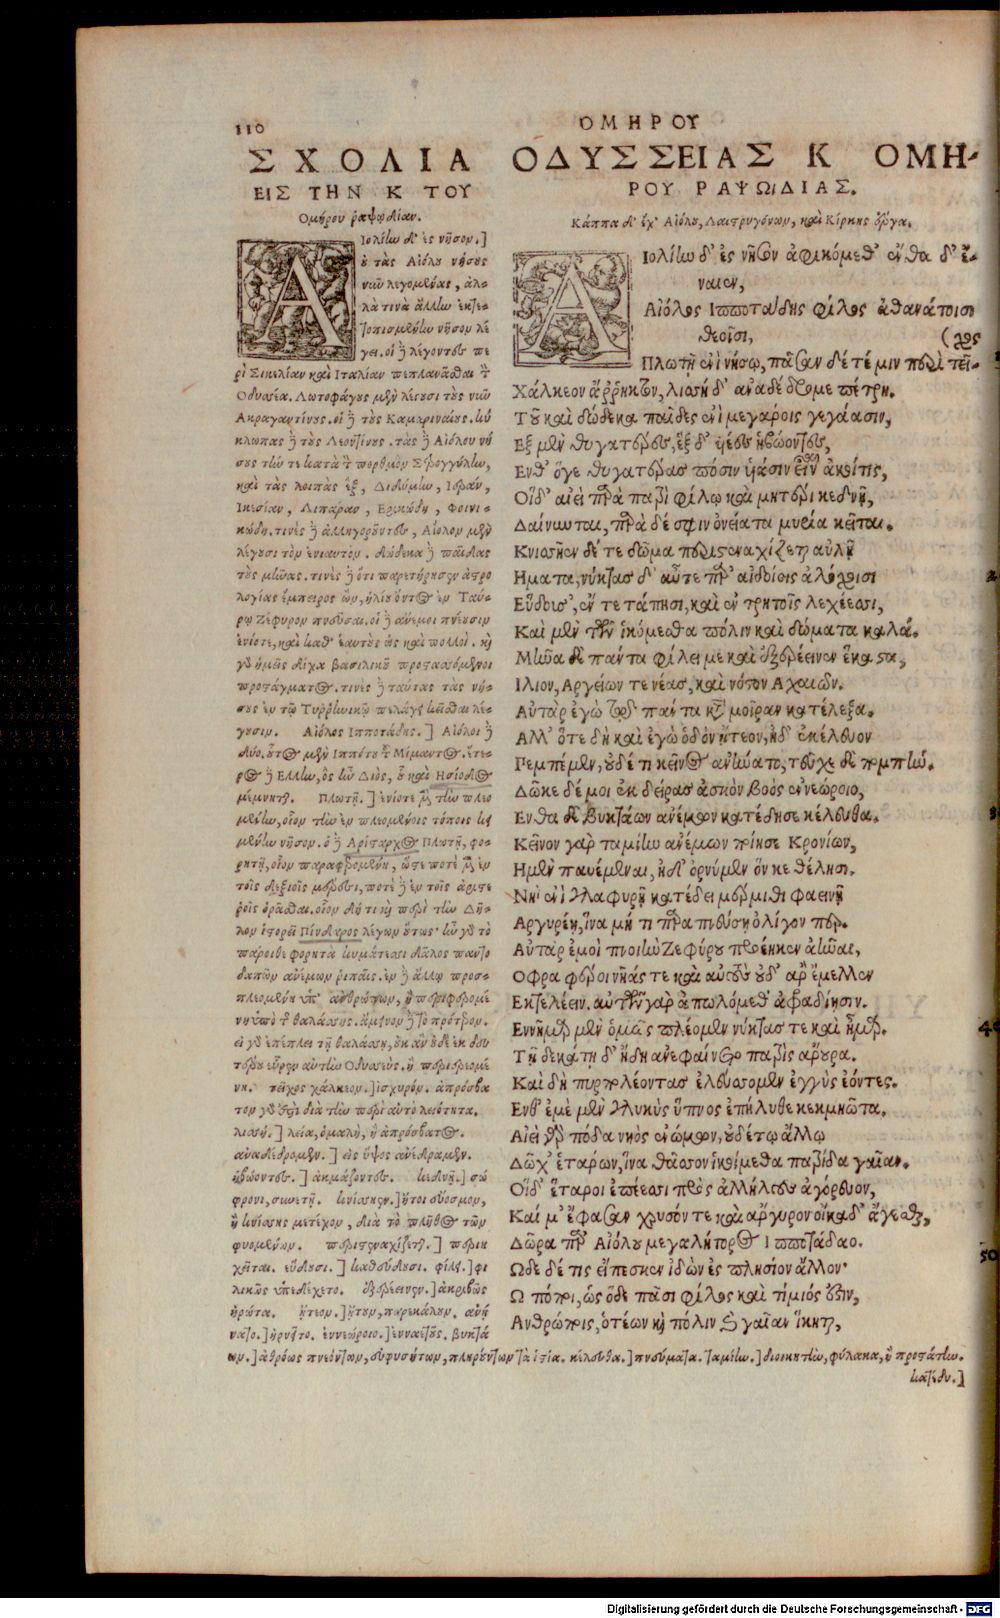 110
ΟΜΗΡΟΥ
ΣΧΟΛΙΑ
ΕΙΣ ΤΗΝ Κ ΤΟΥ
Ομήρου ῥαψῳδίαν.
Αἰολίην δ' ἐς νῆσον.]
ὁ τὰς Αἰόλου νήσους
νῦν λεγομένας, ἀλ-
λὰ τινὰ ἄλλην ἐκτε-
τοπισμένην νῆσον λέ
γει. οἱ ἢ λέγοντες πε
ρὶ Σικελίαν καὶ Ἰταλίαν πεπλανᾶσθαι τ
Οδυσσέα. Λωτοφάγους μὲν λέγουσι τοὺς νῦν
Ακραγαντίνους. οἱ δὲ τοὺς Καμαριναίους. κύ
κλωπας δὲ τοὺς Λεοντίνους. τὰς δὲ Αἰόλου νή
σους τήν τε κατὰ τ πορθμὸν Στρογγύλην,
καὶ τὰς λοιπὰς ἓξ, Διδύμην, Ιερὰν,
Ικεσίαν, Λιπαραν, Ερικώδη, Φοινι-
κώδη. τινὲς δὲ ἀλληγοροῦντες, Αἴολον μὲν
λέγουσι τὸν ἐνιαυτόν. δώδεκα δὲ παῖδας
τοὺς μῆνας. τινὲς δὲ ὅτι παρετήρησεν ἀστρο
λογίας ἔμπειρος ὢν, ἡλίου ὄντος ἐν Ταύ-
ρῳ Ζέφυρον πνεῦσαι. οἱ δὲ ἄνεμοι πνέουσιν
ἐνίοτε, καὶ καθ' ἑαυτοὺς ὡς καὶ πολλοί. καὶ
γὰρ ἡμεῖς δίχα βασιλικοῦ προτασσόμενοι
προτάγματος. τινὲς δὲ ταύτας τὰς νή-
σους ἐν τῷ Τυρρηνικῷ πελάγει κεῖσθαι λέ-
γουσιν. Αἴολος Ιπποτάδης.] Αἴολοι δὲ
δύο. οὗτος μὲν Ιππότου τ Μίμαντος. ἕτε-
ρος δὲ Ελλην, ὃς ἦν Διὸς, οὗ καὶ Ησίοδος
μέμνηται. Πλωτῇ.] ἐνίοτε μὲν τὴν πλεο
μένην, οἷον τὴν ἐν πλεομένοις τόποις κει
μένην νῆσον. ὁ δὲ Αρίσταρχος Πλωτῇ, φο-
ρητῇ, οἷον παραφερομένῃ, ὥστε ποτὲ μὲν ἐν
τοῖς δεξιοῖς μέρεσι, ποτὲ δὲ ἐν τοῖς ἀριστε
ροῖς ὁρᾶσθαι. οἷον δή τι καὶ περὶ τὴν Δῆ-
λον ἱστορεῖ Πίνδαρος λέγων οὕτως· ἦν γὰρ τὸ
πάροιθε φορητὰ κυμάτεσσι Δᾶλος παντο
δαπῶν ἀνέμων ῥιπαῖς. ἐν δὲ ἄλλῳ προσ-
πλεομένη ὑπ' ἀνθρώπων, ἢ περιφερομέ
νη ὑπὸ τ θαλάσσης. ἄμεινον δὲ τὸ πρότερον.
εἰ γὰρ ἐπέπλει τῇ θαλάσσῃ, οὐκ ἂν οὐδὲ ἐκ δευ
τέρου εὗρεν αὐτὴν Οδυσσεύς. ἢ περιφερομέ
νη. τεῖχος χάλκεον.] ἰσχυρόν. ἀπρόσβα
τον γάρ ἐστι διὰ τὴν περὶ αὐτὸ λειότητα.
λισσή.] λεία, ὁμαλὴ, ἢ ἀπρόσβατος.
ἀναδέδρομεν.] εἰς ὕψος ἀνέδραμεν.
ἡβώοντες.] ἀκμάζοντες. κεδνῇ.] σώ
φρονι, συνετῇ. κνίσσηεν.] ἤτοι εὔοσμον,
ἢ κνίσσης μετέχον, διὰ τὸ πλῆθος τῶν
φυομένων. περιστεναχίζεται.] περιη
χεῖται. εὕδουσι.] καθεύδουσι. φίλει.] φι
λικῶς ὑπεδέχετο. ἐξερέεινεν.] ἀκριβῶς
ἠρώτα. ᾔτεον.] ᾔτουν, παρεκάλουν. ἀνή
νατο.] ἠρνεῖτο. ἐννεώροιο.] ἐνναετοῦς. βυκτά
ων.] ἀθρόως πνεόντων, εὐφυσήτων, πληρούντων τὰ ἱστία. κέλευθα.] πνεύματα. ταμίην.] διοικητὴν, φύλακα, ἢ προστάτην.
κατέδει.]
ΟΔΥΣΣΕΙΑΣ Κ ΟΜΗ-
ΡΟΥ ΡΑΨΩΙΔΙΑΣ.
Κάππα δ' ἔχ' Αἰόλου, Λαιστρυγόνων, καὶ Κίρκης ἔργα.
Αἰολίην δ' ἐς νῆσον ἀφικόμεθ' ἔνθα δ' ἔ-
ναιεν,
Αἴολος Ιπποτάδης φίλος ἀθανάτοισι
θεοῖσι,
(χος
Πλωτῇ ἐνὶ νήσῳ, πᾶσαν δέ τέ μιν πέρι τεῖ-
Χάλκεον ἄρρηκτον, λισσὴ δ' ἀναδέδρομε πέτρη.
Τοῦ καὶ δώδεκα παῖδες ἐνὶ μεγάροις γεγάασιν,
Εξ μὲν θυγατέρες, ἓξ δ' υἱέες ἡβώοντες,
Ενθ' ὅγε θυγατέρας πόσιν υἱάσιν εἶναι ἀκοίτις,
Οἵδ' αἰεὶ παρὰ πατρὶ φίλῳ καὶ μητέρι κεδνῇ,
Δαίνυνται, παρὰ δέ σφιν ὀνείατα μυρία κεῖται.
Κνισῆεν δέ τε δῶμα περιστεναχίζεται αὐλῇ
Ηματα, νύκτας δ' αὖτε παρ' αἰδοίοις ἀλόχοισι
Εὕδουσ', ἔν τε τάπησι, καὶ ἐν τρητοῖς λεχέεσσι,
Καὶ μὲν τῶν ἱκόμεσθα πόλιν καὶ δώματα καλά.
Μῆνα δὲ πάντα φίλει με καὶ ἐξερέεινεν ἕκαστα,
Ιλιον, Αργείων τε νέας, καὶ νόστον Αχαιῶν.
Αὐτὰρ ἐγὼ τῷ πάντα κατὰ μοῖραν κατέλεξα.
Αλλ' ὅτε δὴ καὶ ἐγὼ ὁδὸν ᾔτεον, ἠδ' ἐκέλευον
Πεμπέμεν, οὐδέ τι κεῖνος ἀνήνατο, τεῦχε δὲ πομπήν.
Δῶκε δέ μοι ἐκδείρας ἀσκὸν βοὸς ἐννεώροιο,
Ενθα δὲ βυκτάων ἀνέμων κατέδησε κέλευθα.
Κεῖνον γὰρ ταμίην ἀνέμων ποίησε Κρονίων,
Ημὲν παυέμεναι, ἠδ' ὀρνύμεν ὅν κε θέλησι.
Νηῒ ἐνὶ γλαφυρῇ κατέδει μέρμιθι φαεινῇ
Αργυρέῃ, ἵνα μή τι παραπνεύσῃ ὀλίγον περ.
Αὐτὰρ ἐμοὶ πνοιὴν Ζεφύρου προέηκεν ἀῆναι,
Οφρα φέροι νῆάς τε καὶ αὐτοὺς οὐδ' ἄρ' ἔμελλεν
Εκτελέειν. αὐτῶν γὰρ ἀπωλόμεθ' ἀφραδίῃσιν.
Εννῆμαρ μὲν ὁμῶς πλέομεν νύκτας τε καὶ ἦμαρ.
Τῇ δεκάτῃ δ' ἤδη ἀνεφαίνετο πατρὶς ἄρουρα.
Καὶ δὴ πυρπολέοντας ἐλεύσσομεν ἐγγὺς ἐόντες.
Ενθ' ἐμὲ μὲν γλυκὺς ὕπνος ἐπήλυθε κεκμηῶτα.
Αἰεὶ γὰρ πόδα νηὸς ἐνώμων, οὐδέ τῳ ἄλλῳ
Δῶχ' ἑτάρων, ἵνα θᾶσσον ἱκοίμεθα πατρίδα γαῖαν.
Οἵδ' ἕταροι ἐπέεσσι πρὸς ἀλλήλους ἀγόρευον,
Καί μ' ἔφασαν χρυσόν τε καὶ ἄργυρον οἴκαδ' ἄγεσθαι,
Δῶρα παρ' Αἰόλου μεγαλήτορος Ιπποτάδαο.
Ωδε δέ τις εἴπεσκεν ἰδὼν ἐς πλησίον ἄλλον·
Ω πόποι, ὡς ὅδε πᾶσι φίλος καὶ τίμιός ἐστιν,
Ανθρώποις, ὁτέων καὶ πόλιν καὶ γαῖαν ἵκηται,
50
Digitalisierung gefördert durch die Deutsche Forschungsgemeinschaft - DFG